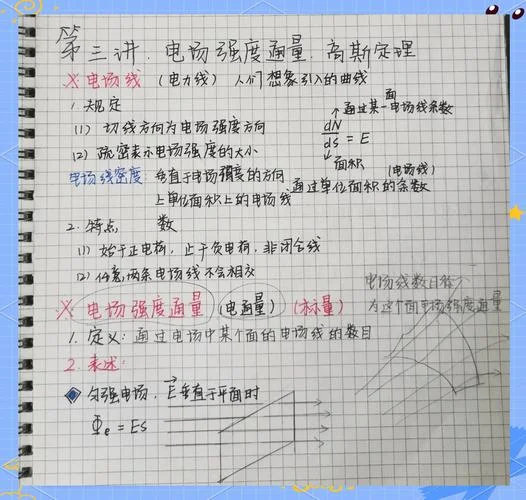 第三讲. 电场强度通量. 高斯定理
※ 电场线 (电力线) 人们想象引入的曲线
1. 规定
(1) 切线方向为电场强度方向
(2) 疏密表示电场强度的大小
通过某一面电场线条数
dN/ds = E
面积
电场线密度: 垂直于电场强度的方向上单位面积上的电场线数
通过单位面积的条数
(电场线)
2. 特点
(1) 始于正电荷, 止于负电荷, 非闭合线
(2) 任意两条电场线不会相交
※ 电场强度通量 (电通量) (标量)
电场线数目称
为这个面电场强度通量
1. 定义: 通过电场中某个面的电场线的数目
2. 表述:
匀强电场, E⃗ 垂直于平面时
Φe = ES